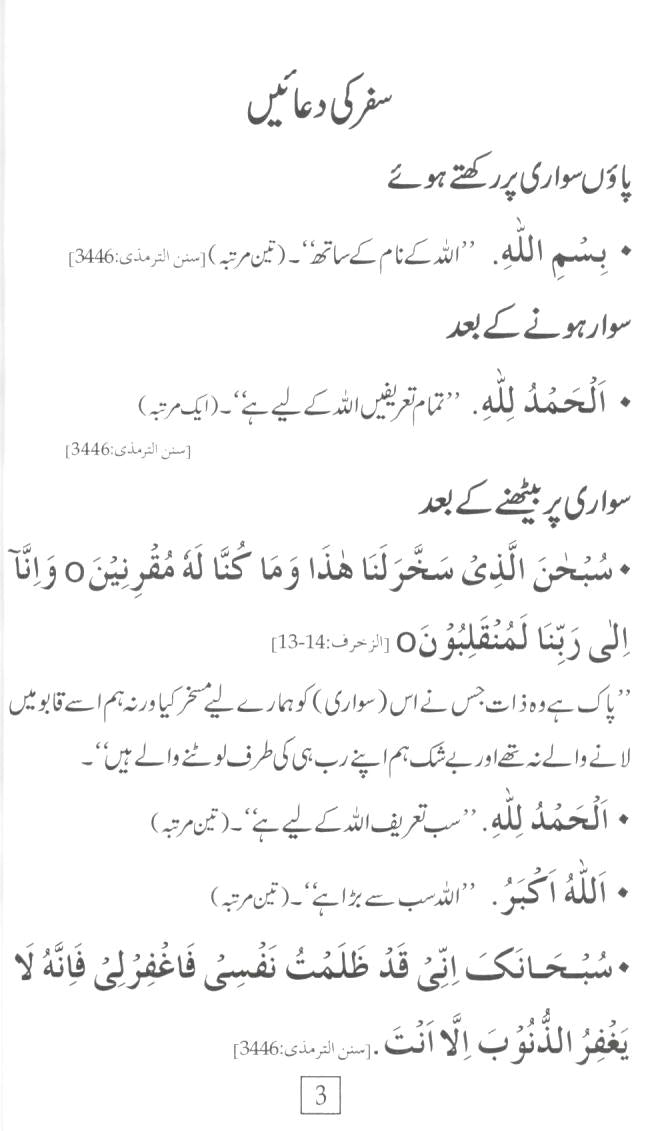 سفر کی دعائیں
پاؤں سواری پر رکھتے ہوئے
• بِسْمِ اللّٰهِ. ’’اللہ کے نام کے ساتھ‘‘۔ (تین مرتبہ) [سنن الترمذی:3446]
سوار ہونے کے بعد
• اَلْحَمْدُ لِلّٰهِ. ’’تمام تعریفیں اللہ کے لیے ہے‘‘۔ (ایک مرتبہ)
[سنن الترمذی:3446]
سواری پر بیٹھنے کے بعد
• سُبْحٰنَ الَّذِیْ سَخَّرَ لَنَا هٰذَا وَمَا كُنَّا لَهٗ مُقْرِنِیْنَ o وَاِنَّآ
اِلٰی رَبِّنَا لَمُنْقَلِبُوْنَ o [الزخرف:14-13]
’’پاک ہے وہ ذات جس نے اس (سواری) کو ہمارے لیے مسخر کیا ورنہ ہم اسے قابو میں
لانے والے نہ تھے اور بے شک ہم اپنے رب ہی کی طرف لوٹنے والے ہیں‘‘۔
• اَلْحَمْدُ لِلّٰهِ. ’’سب تعریف اللہ کے لیے ہے‘‘۔ (تین مرتبہ)
• اَللّٰهُ اَكْبَرُ. ’’اللہ سب سے بڑا ہے‘‘۔ (تین مرتبہ)
• سُبْحَانَکَ اِنِّیْ قَدْ ظَلَمْتُ نَفْسِیْ فَاغْفِرْلِیْ فَاِنَّهُ لَا
یَغْفِرُ الذُّنُوْبَ اِلَّا اَنْتَ. [سنن الترمذی:3446]
3